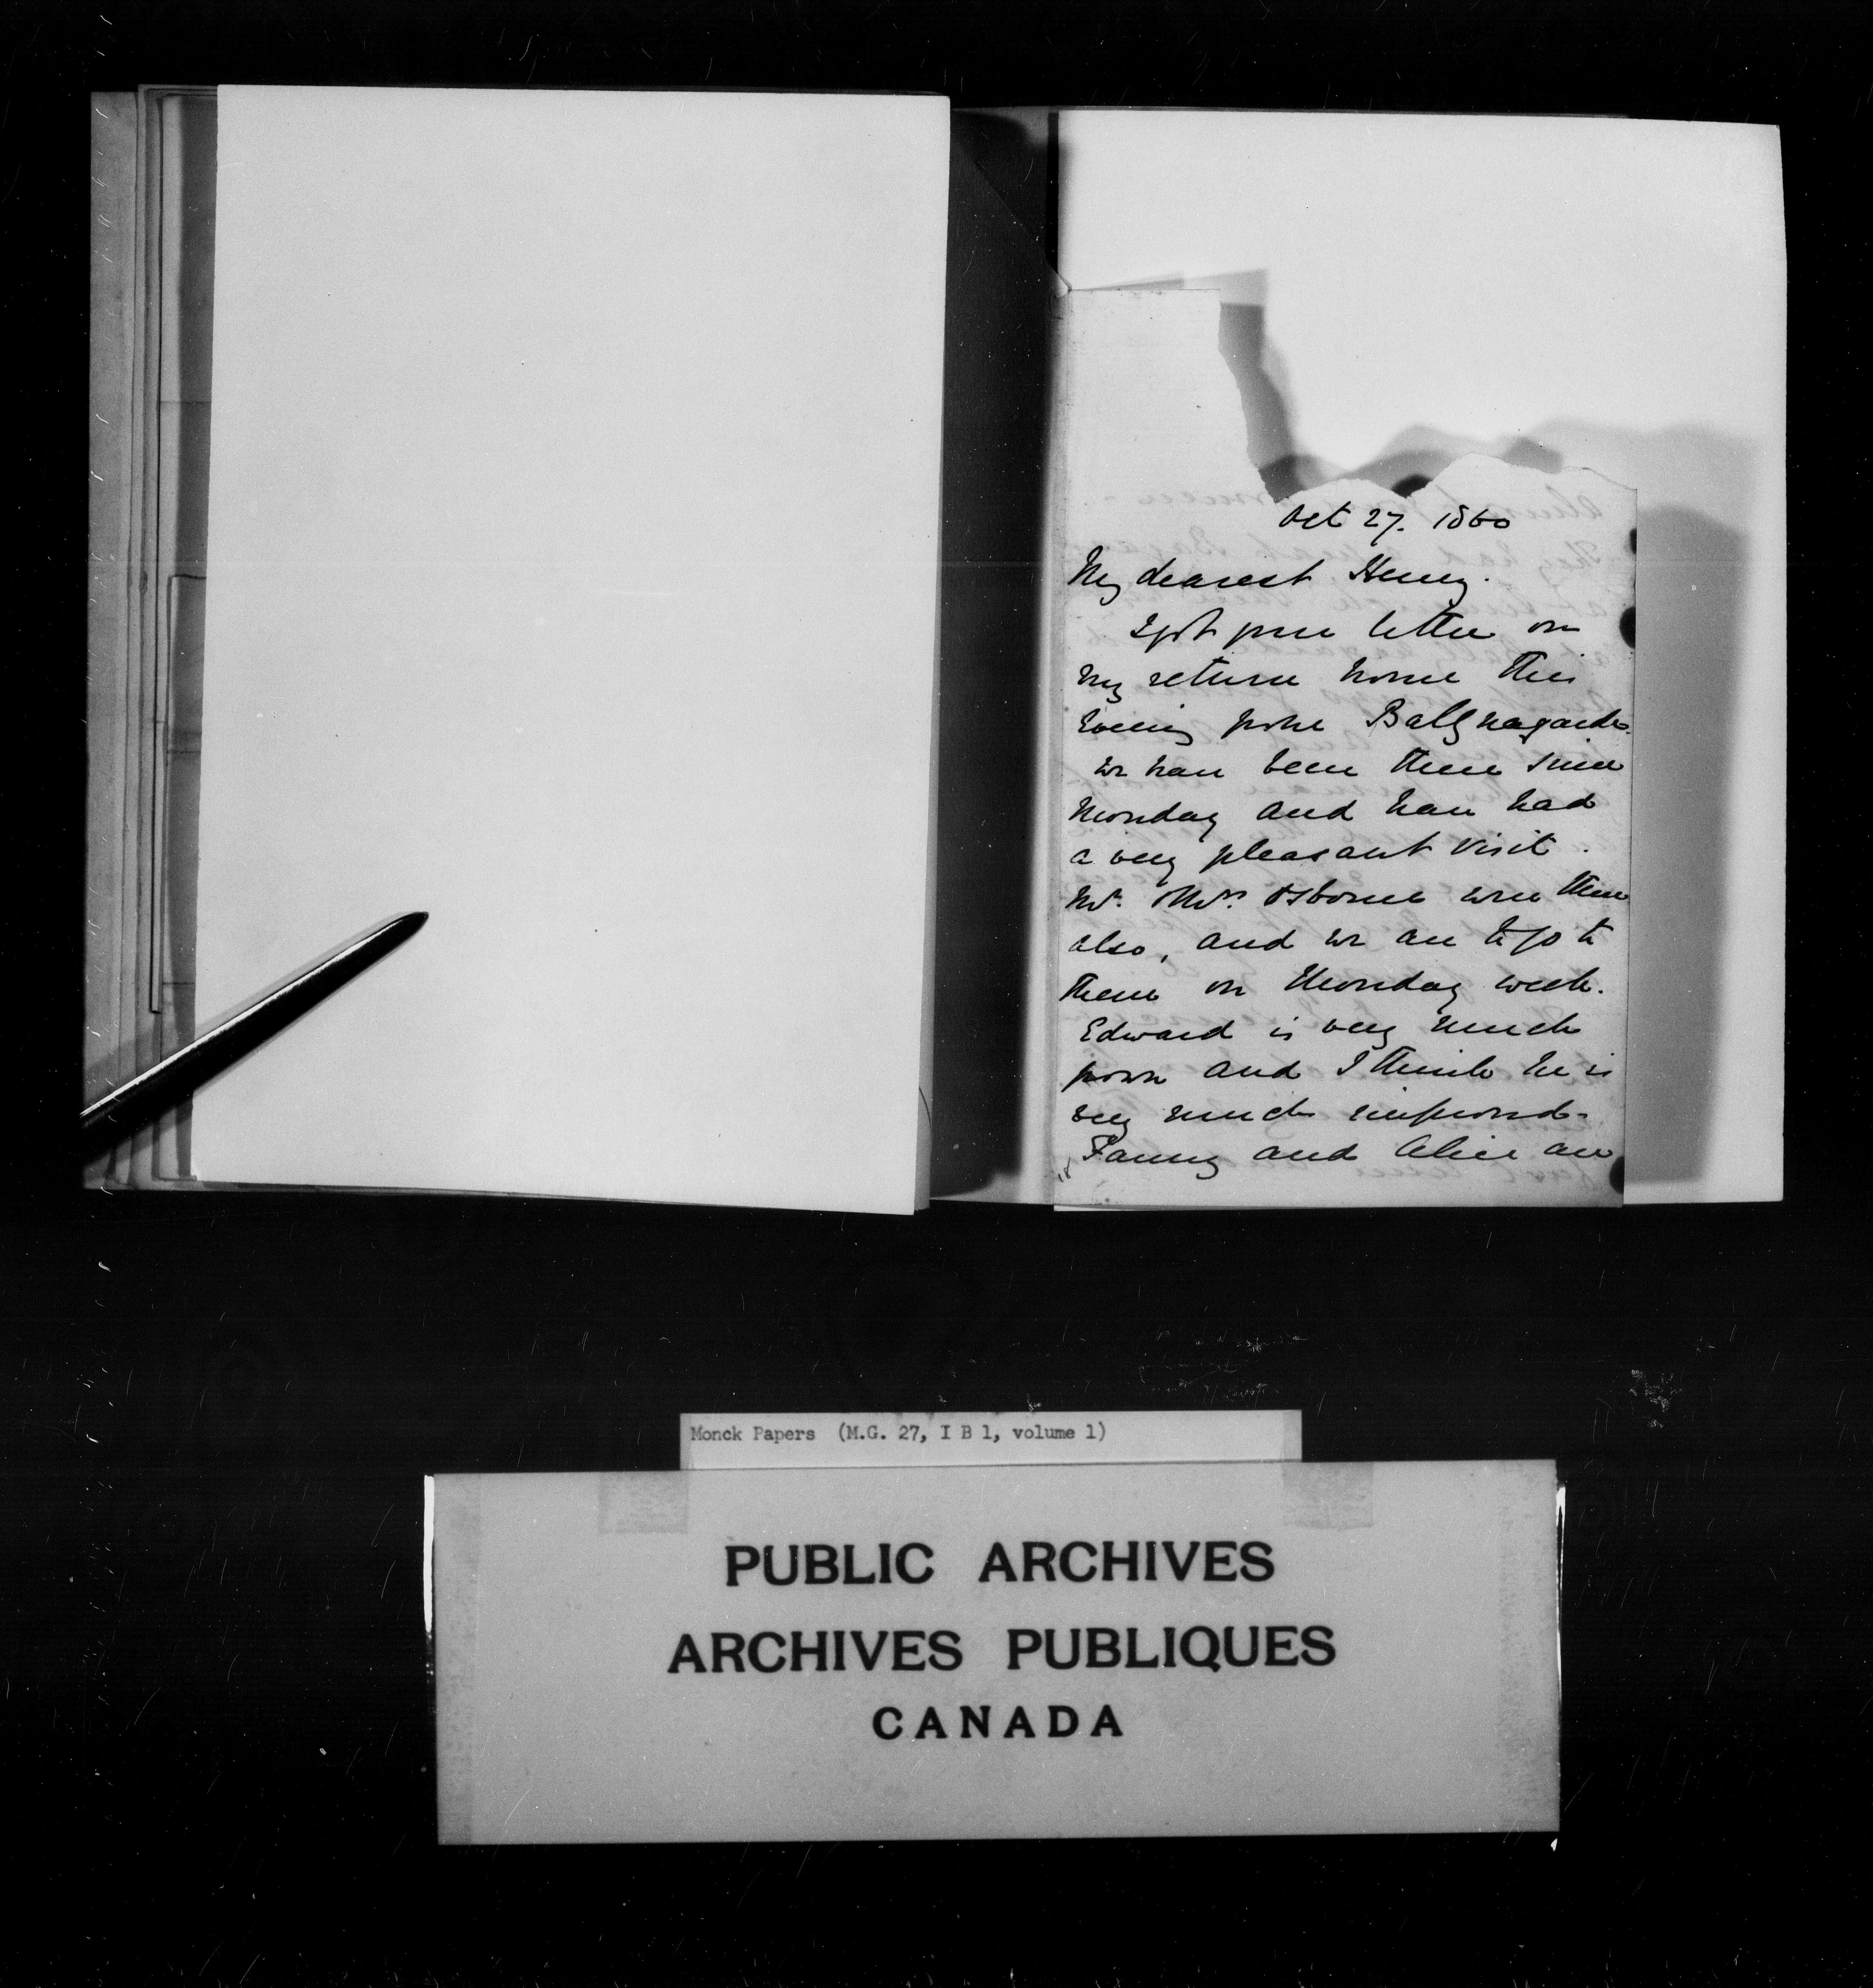 Oct 27. 1860
My dearest Henry.
I got your letter on
my return home this
evening from Ballynagarde
we have been there since
Monday and have had
a very pleasant visit.
Mr. & Mrs. Osborne were there
also, and we are to go to
them on Monday week.
Edward is very much
grown and I think he is
very much improved.
Fanny and Alice are
Monck Papers (M.G. 27, I B 1, volume 1)
PUBLIC ARCHIVES
ARCHIVES PUBLIQUES
CANADA